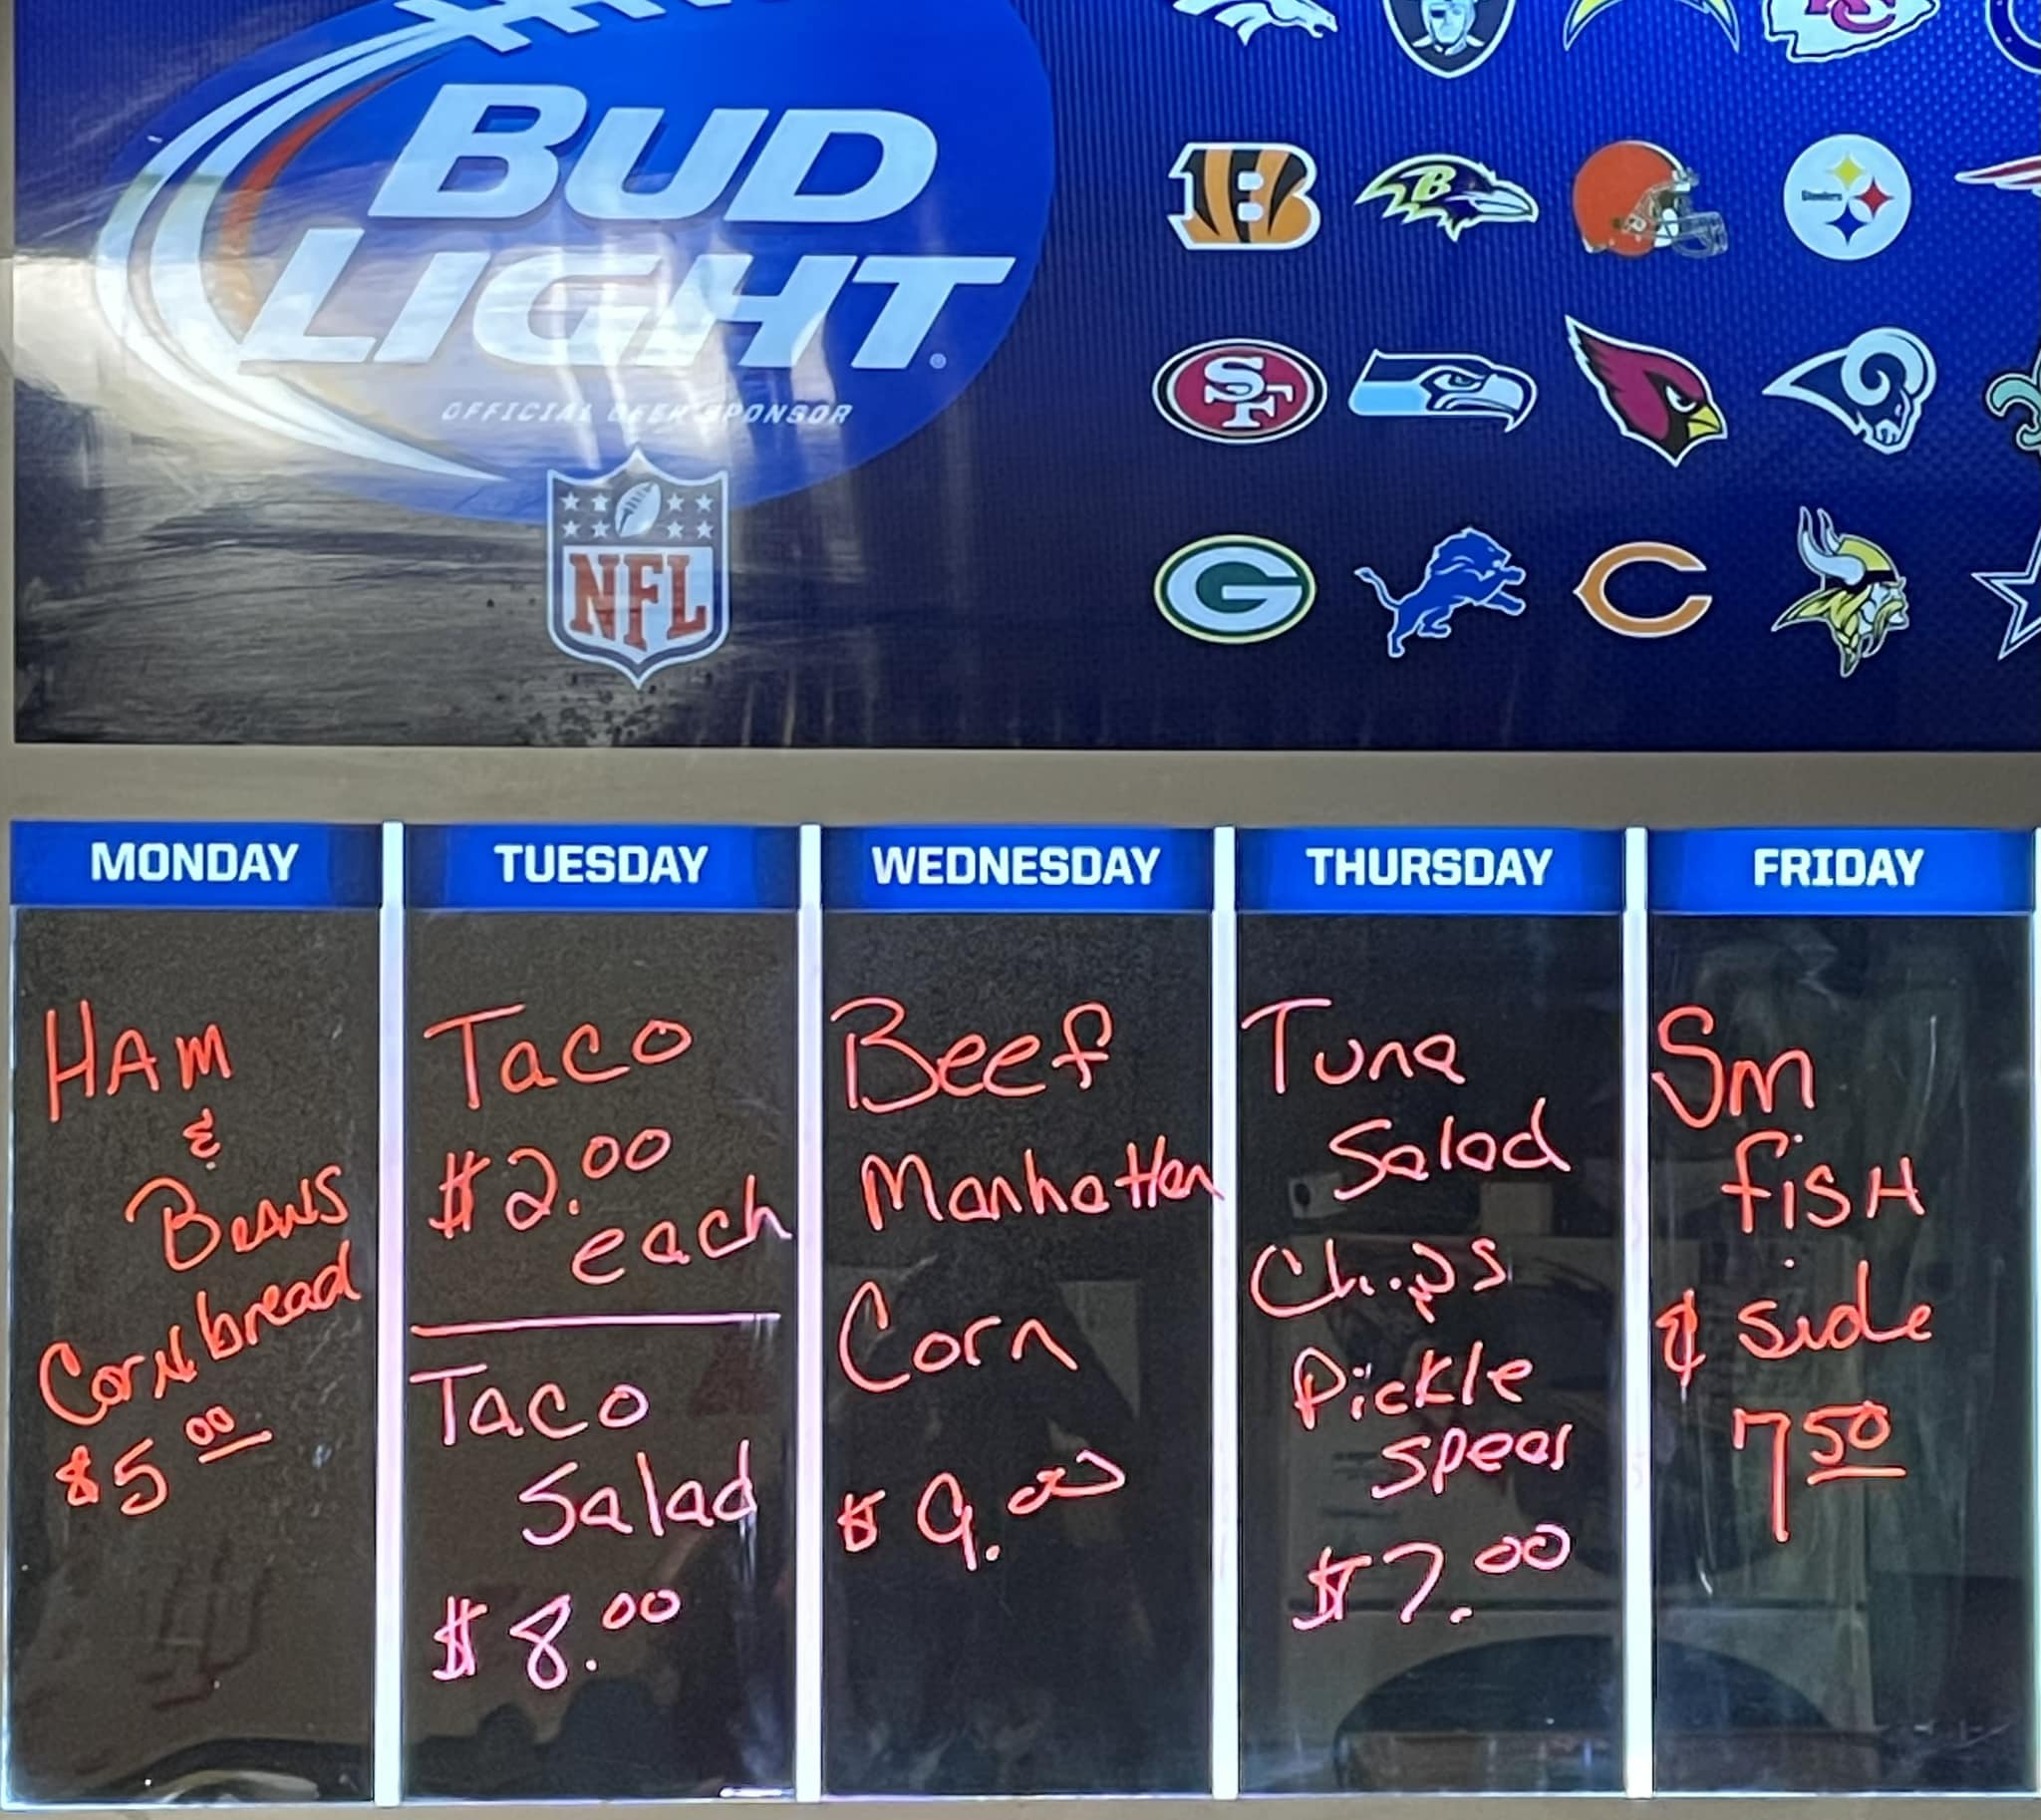 BUD
LIGHT
OFFICIAL BEER SPONSOR
NFL
KC
B
B
Steelers
SF
G
C
MONDAY
HAM
&
BEANS
CorNbread
$5 00
TUESDAY
Taco
$2.00
each
Taco
Salad
$8.00
WEDNESDAY
Beef
Manhatten
Corn
$9.00
THURSDAY
Tuna
Salad
Chips
Pickle
spear
$7.00
FRIDAY
Sm
fisH
& side
7 50